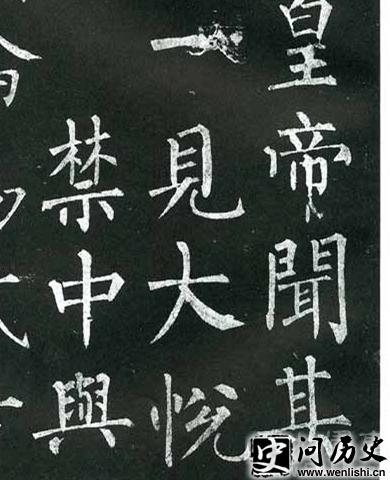 皇帝聞其
一見大悅
禁中與
史 问历史
www.wenlishi.cn